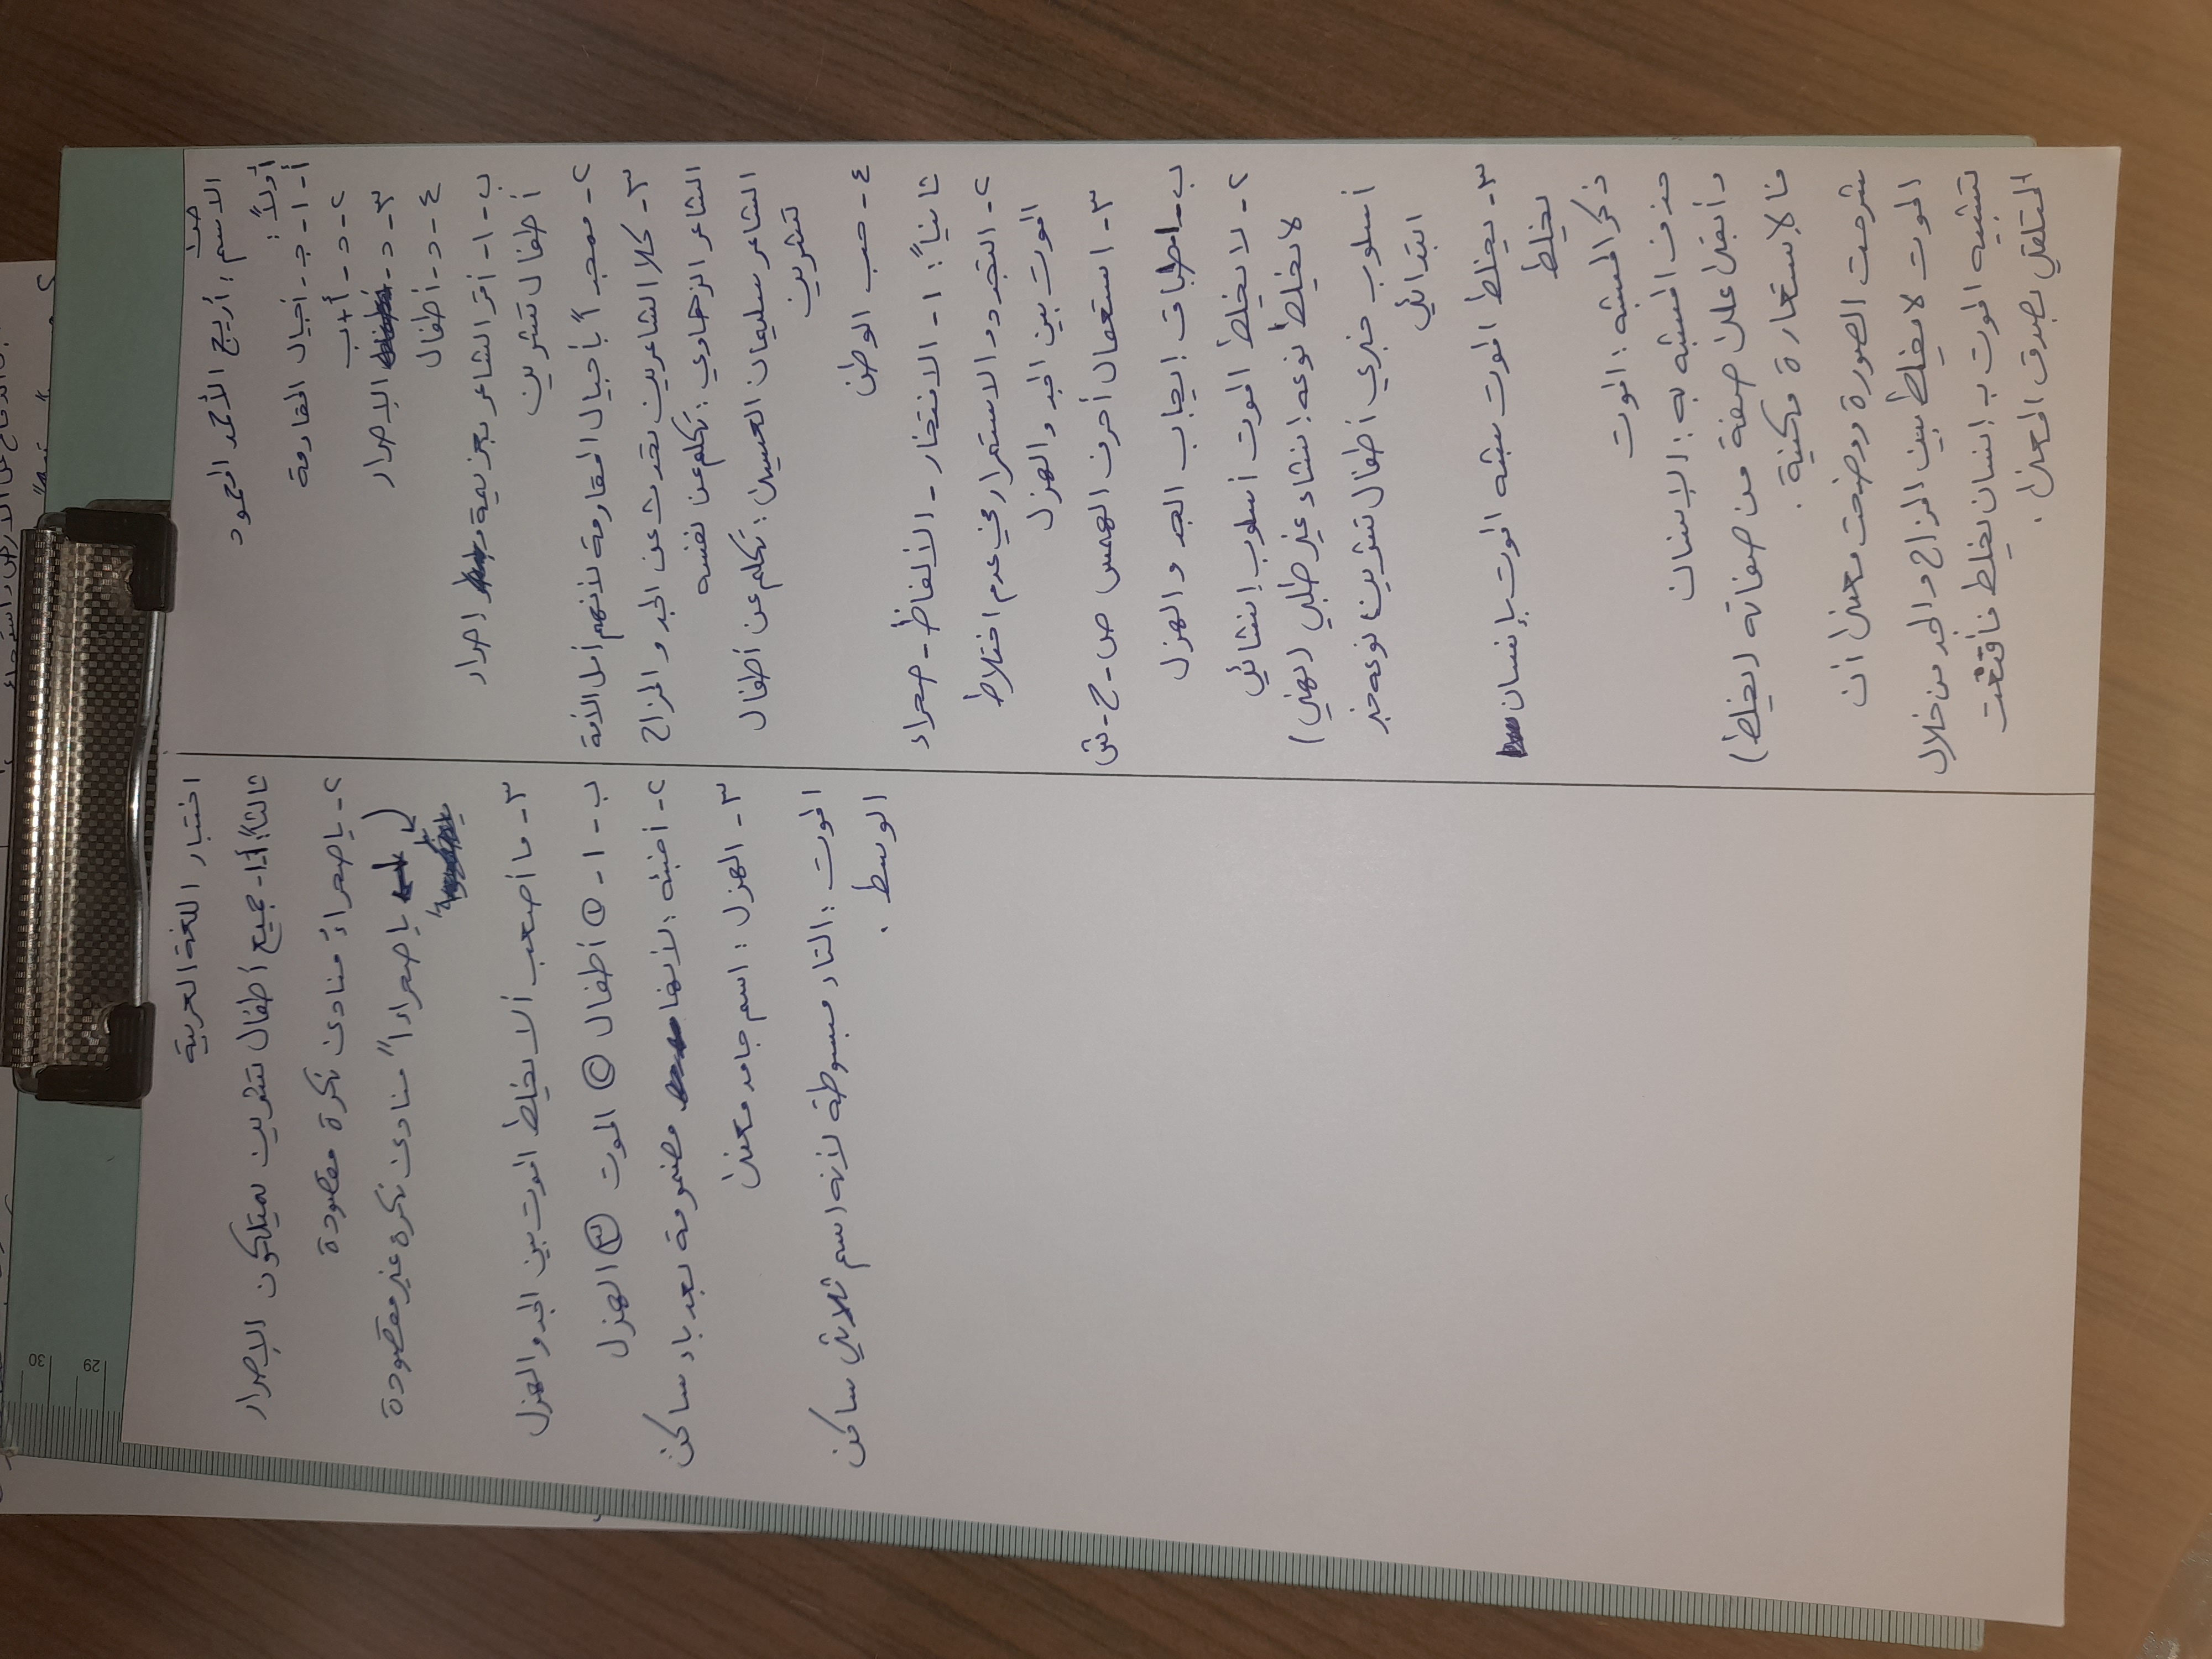 الاسم: أريج الأحمد المحمود
أولاً:
أ- ١- جـ - أجيال القادمة
٢- د - أ+ب
٣- د - الإصرار
٤- د - أطفال
ب- ١- أقر الشاعر بعزيمة و اصرار
أطفال تشرين
٢- ممجداً بأجيال القادمة لأنهم أمل الأمة
٣- كلا الشاعرين تحدث عن الجد و المزاح
الشاعر الزهاوي: تكلم عن نفسه
الشاعر سليمان العيسى: تكلم عن أطفال
تشرين
٤- حب الوطن
ثانياً: ١- الافتخار - الألفاظ - صحراء
٢- التجدد و الاستمرار في عدم اختلاط
الموت بين الجد و الهزل
٣- استعمال أحرف الهمس ص - ح - ش
ب- ١- طباق إيجاب الجد و الهزل
٢- لا يخلط الموت أسلوب إنشائي
لا يخلط نوعه إنشاء غير طلبي (نهي)
أسلوب خبري أطفال تشرين نوعه خبر
ابتدائي
٣- يخلط الموت شبه الموت بإنسان
يخلط
ذكر المشبه: الموت
حذف المشبه به: الإنسان
و أبقى على صفة من صفاته (يخلط)
فالإستعارة مكنية.
شرحت الصورة ووضحت معنى أن
الموت لا يخلط بين المزاح و الجد من خلال
تشبيه الموت ب إنسان يخلط فأقنعت
المتلقي بصدق المعنى.
اختبار اللغة العربية
ثالثاً: أ- ١- جميع أطفال تشرين يمتلكون الإصرار
٢- يا صحراءُ منادى نكرة مقصودة
يا صحراءاً منادى نكرة غير مقصودة
٣- ما أصعب ألا يخلط الموت بين الجد و الهزل
ب - ١- ① أطفال ② الموت ③ الهزل
٢- أخبئه: لأنها مضمومة بعد باء ساكن
٣- الهزل: اسم جامد معنى
الموت: التاء مبسوطة لأنه اسم ثلاثي ساكن
الوسط.